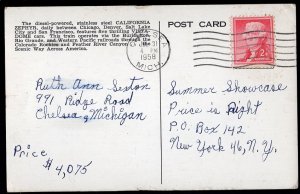 The diesel-powered, stainless steel CALIFORNIA
ZEPHYR, daily between Chicago, Denver, Salt Lake
City and San Francisco, features five thrilling VISTA-
DOME cars. This train operates via the Burlington,
Rio Grande, and Western Pacific railroads through the
Colorado Rockies and Feather River Canyon.
Scenic Way Across America.
POST CARD
4 PM
1958
MICH
2¢
Ruth Ann Sexton
991 Ridge Road
Chelsea, Michigan
Price
$4,075
Summer Showcase
Price is Right
P.O. Box 142
New York 46, N.Y.